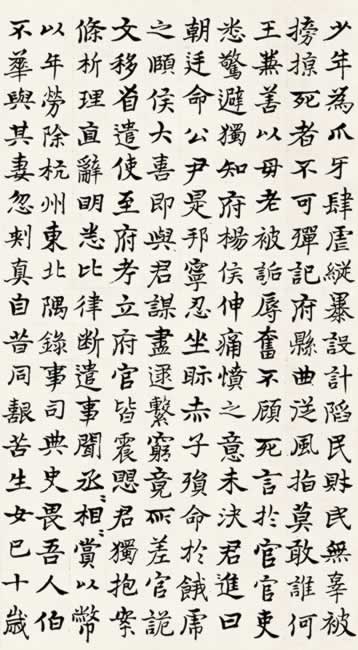 少年為爪牙肆虐縱暴設計陷民財民無辜被
搒掠死者不可殫記府縣曲從風指莫敢誰何
王善以毋老被詬辱奮不顧死言於官官吏
悉驚避獨知府楊侯伸痛憤之意未決君進曰
朝廷命公尹是邦寧忍坐眎赤子殞命於餓乕
之頤侯大喜即與君謀盡逮繫窮竟所差官詭
文移省遣使至府考立府官皆震愳君獨抱案
條析理直辭明悉比律斷遣事聞丞〻相〻賞以幣
以年勞除杭州東北隅錄事司典史畏吾人伯
不華與其妻忽剌真自昔同艱苦生女巳十歲